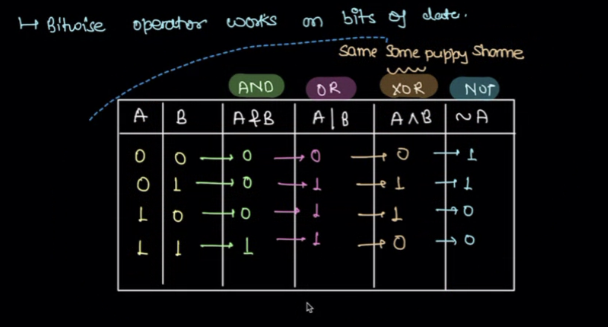 ↳ Bitwise operator works on bits of data.
Same Same puppy Shame
AND OR XOR NOT
A B A&B A|B A^B ~A
0 0 → 0 → 0 → 0 → 1
0 1 → 0 → 1 → 1 → 1
1 0 → 0 → 1 → 1 → 0
1 1 → 1 → 1 → 0 → 0